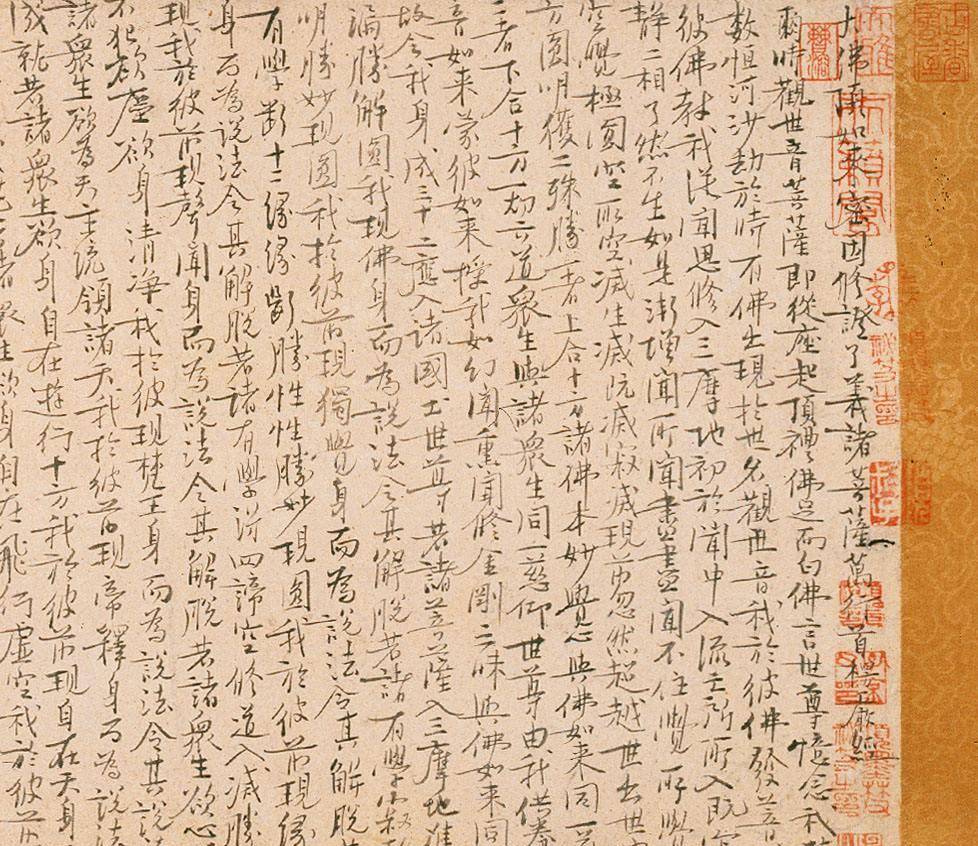 大佛頂如來密因修證了義諸菩薩萬行首楞嚴經
爾時觀世音菩薩即從座起頂禮佛足而白佛言世尊憶念我
數恒河沙劫於時有佛出現於世名觀世音我於彼佛發菩
彼佛教我從聞思修入三摩地初於聞中入流亡所所入既
靜二相了然不生如是漸增聞所聞盡盡聞不住覺所覺
空覺極圓空所空滅生滅既滅寂滅現前忽然超越世出世
方圓明獲二殊勝一者上合十方諸佛本妙覺心與佛如來同一
二者下合十方一切六道衆生與諸衆生同一悲仰世尊由我供養
音如來蒙彼如來授我如幻聞熏聞修金剛三昧與佛如來同
故令我身成三十二應入諸國土世尊若諸菩薩入三摩地進
漏勝解圓我現佛身而為說法令其解脫若諸有學寂
明勝妙現圓我於彼前現獨覺身而為說法令其解脫
有學斷十二緣緣斷勝性性勝妙現圓我於彼前現緣
身而為說法令其解脫若諸有學得四諦空修道入滅勝
現我於彼前現聲聞身而為說法令其解脫若諸衆生欲心
不犯欲塵欲身清淨我於彼現梵王身而為說法令其
諸衆生欲為天主統領諸天我於彼前現帝釋身而為說法
成就若諸衆生欲身自在遊行十方我於彼前現自在天身
衆生欲身自在飛行虛空我於彼前